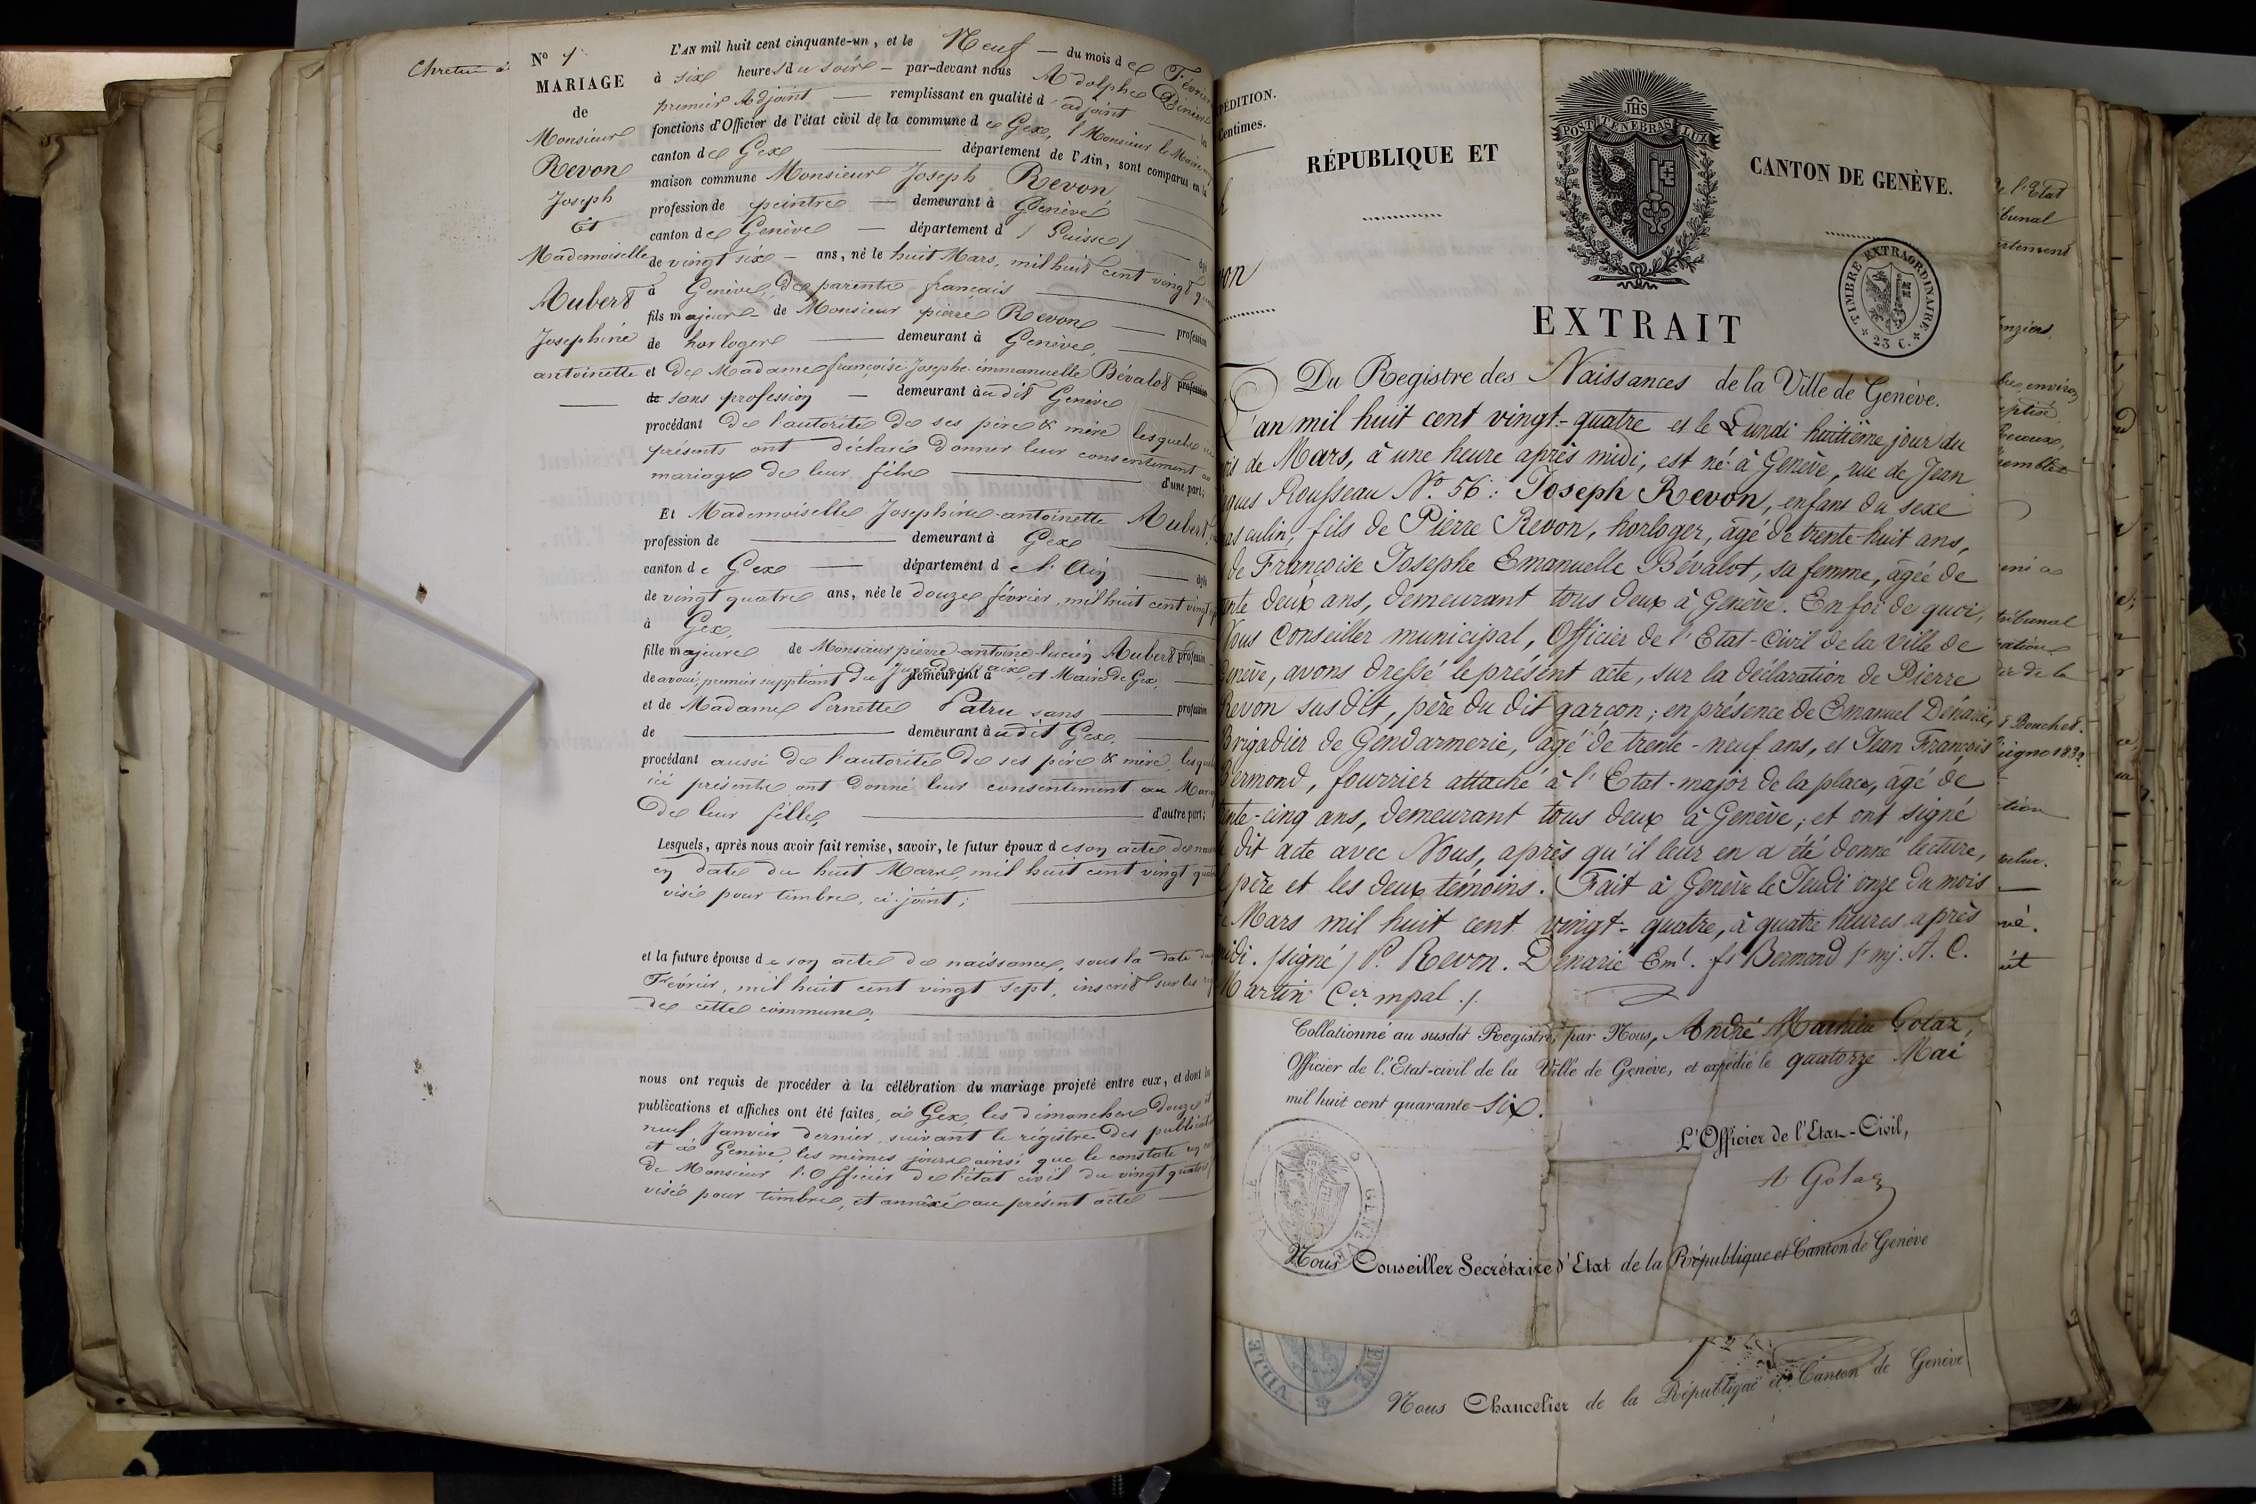 Chretien à
Nº 7
MARIAGE
de
Monsieur
Revon
Joseph
Et
Mademoiselle
Aubert
Josephine
antoinette
L'AN mil huit cent cinquante-un, et le Neuf du mois de Février
à six heures du soir par-devant nous Adolphe
premier Adjoint remplissant en qualité d'adjoint
fonctions d'Officier de l'état civil de la commune de Gex, Monsieur le Maire
canton de Gex département de l'Ain, sont comparus en la
maison commune Monsieur Joseph Revon
profession de peintre demeurant à Genève
canton de Genève département d (Suisse)
de vingt six ans, né le huit Mars, mil huit cent vingt
à Genève, de parents français
fils majeur de Monsieur pierre Revon profession
de horloger demeurant à Genève,
et de Madame françoise Josephe émmanuelle Bévalot profession
de sans profession demeurant àudit Genève
procédant de l'autorité de ses père & mère lesquels
présents ont déclaré donner leur consentement au
mariage de leur fils d'une part;
Et Mademoiselle Josephine-antoinette Aubert,
profession de demeurant à Gex
canton de Gex département de l'Ain
de vingt quatre ans, née le douze février, mil huit cent vingt
à Gex,
fille majeure de Monsieur pierre-antoine-lucin Aubert profession
de avoué, premier suppléant du Juge de paix, et Maire de Gex, demeurant à
et de Madame Pernette Patru sans profession
de demeurant àudit Gex,
procédant aussi de l'autorité de ses père & mère, lesquels
ici présents ont donné leur consentement au
de leur fille, d'autre part;
Lesquels, après nous avoir fait remise, savoir, le futur époux de son acte de
en date du huit Mars, mil huit cent vingt
visé pour timbre, ci-joint;
et la future épouse de son acte de naissance, sous la date du
Février, mil huit cent vingt sept, inscrit sur les
de cette commune;
nous ont requis de procéder à la célébration du mariage projeté entre eux, et dont les
publications et affiches ont été faites, à Gex, les dimanches Douze et
neuf Janvier dernier, suivant le régistre des
et à Genève, les mêmes jours ainsi que le constate
de Monsieur l'Officier de l'état civil du vingt quatre
visé pour timbre, et annéxé au présent acte
PÉDITION.
Centimes.
RÉPUBLIQUE ET CANTON DE GENÈVE.
JHS
POST TENEBRAS LUX
TIMBRE EXTRAORDINAIRE
23 C.
EXTRAIT
Du Registre des Naissances de la Ville de Genève.
L'an mil huit cent vingt-quatre et le Lundi huitième jour du
mois de Mars, à une heure après midi, est né à Genève, rue de Jean
Jaques Rousseau Nº 56: Joseph Revon, enfant du sexe
masculin, fils de Pierre Revon, horloger, âgé de trente-huit ans,
de Françoise Josephe Emanuelle Bévalot, sa femme, âgée de
trente deux ans, demeurant tous deux à Genève. En foi de quoi,
Nous Conseiller municipal, Officier de l'Etat-Civil de la ville de
Genève, avons dressé le présent acte, sur la déclaration de Pierre
Revon susdit, père du dit garçon; en présence de Emanuel Dénarié,
Brigadier de Gendarmerie, âgé de trente-neuf ans, et Jean François
Bermond, fourrier attaché à l'Etat-major de la place, âgé de
trente-cinq ans, demeurant tous deux à Genève; et ont signé
le dit acte avec Nous, après qu'il leur en a été donné lecture,
le père et les deux témoins. Fait à Genève le Jeudi onze du mois
de Mars mil huit cent vingt-quatre, à quatre heures après
midi. (signé) P. Revon. Dénarié Eml. fs Bermond A. C.
Martin Cer mpal.
Collationné au susdit Registre, par Nous, André Mathieu Golaz,
Officier de l'Etat-civil de la Ville de Genève, et expédié le quatorze Mai
mil huit cent quarante-six.
L'Officier de l'Etat-Civil,
A Golaz
VILLE GENÈVE
Nous Conseiller Secrétaire d'Etat de la République et Canton de Genève
Nous Chancelier de la République et Canton de Genève
de l'Etat